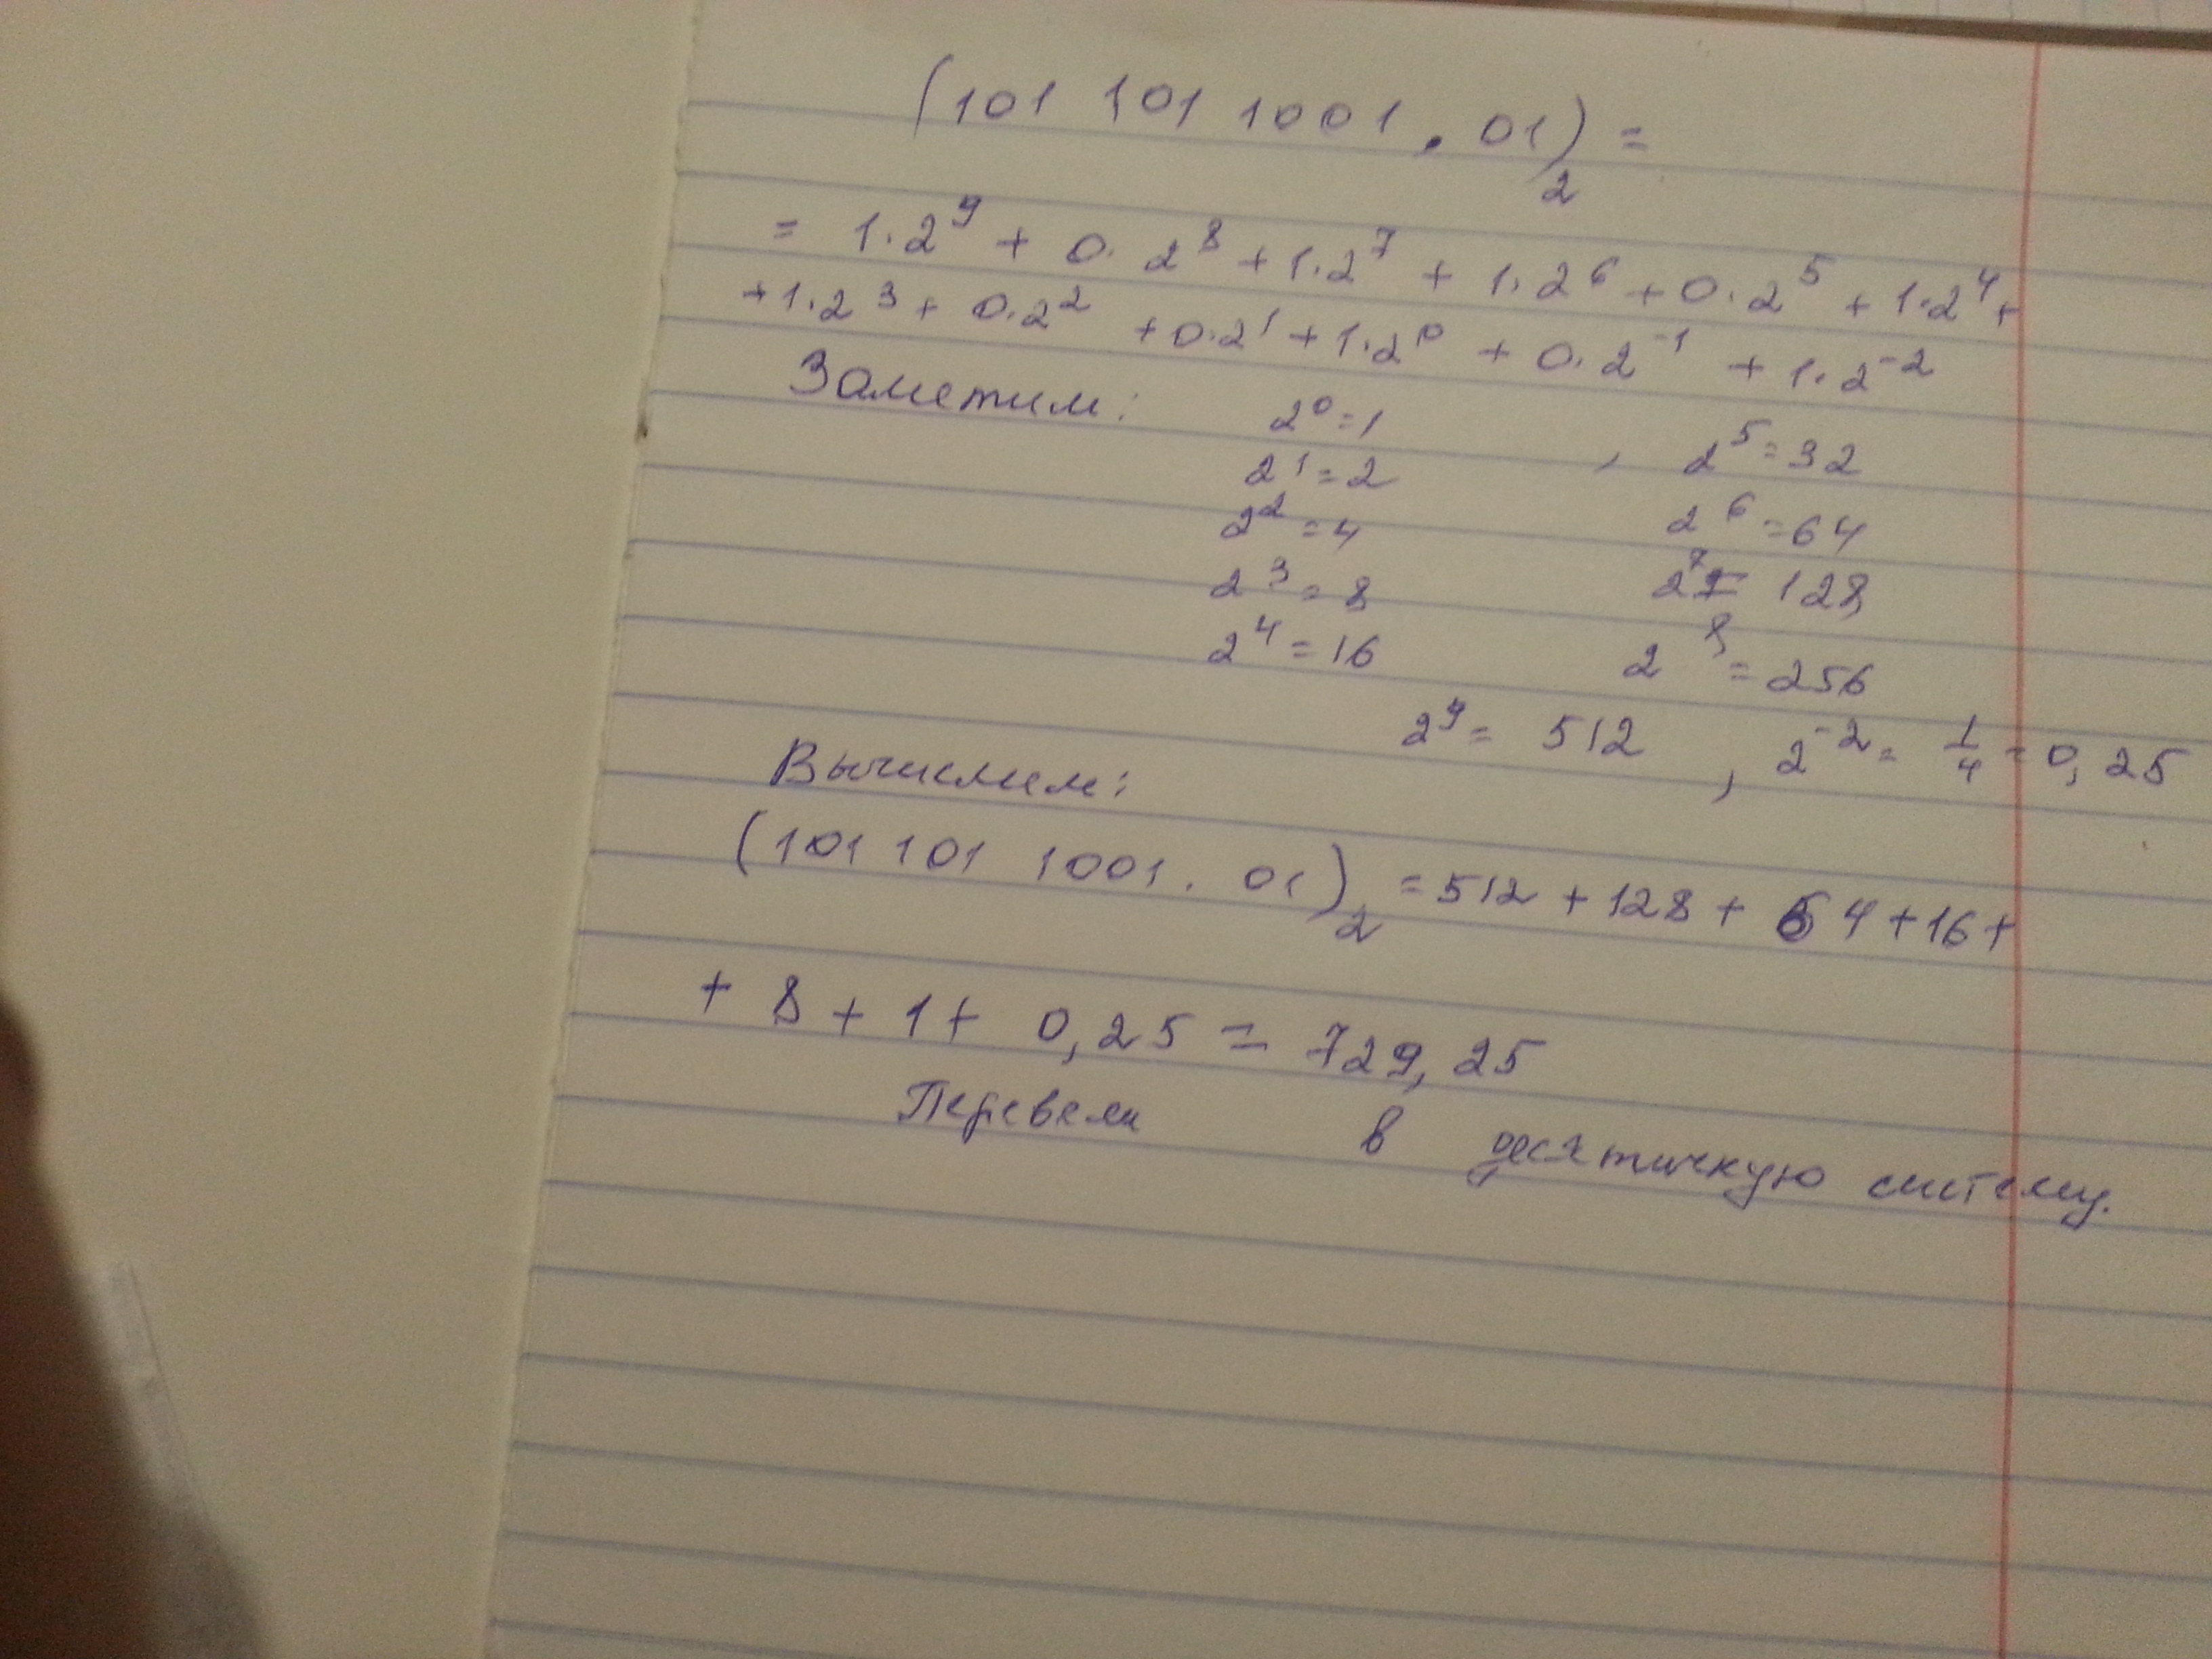 (101 101 1001 . 01)₂ =
= 1·2⁹ + 0·2⁸ + 1·2⁷ + 1·2⁶ + 0·2⁵ + 1·2⁴ +
+ 1·2³ + 0·2² + 0·2¹ + 1·2⁰ + 0·2⁻¹ + 1·2⁻²
Заметим: 2⁰ = 1 , 2⁵ = 32
2¹ = 2
2² = 4 2⁶ = 64
2³ = 8 2⁷ = 128
2⁴ = 16 2⁸ = 256
2⁹ = 512 , 2⁻² = 1/4 = 0,25
Вычислим:
(101 101 1001 . 01)₂ = 512 + 128 + 64 + 16 +
+ 8 + 1 + 0,25 = 729,25
Перевели в десятичную систему.